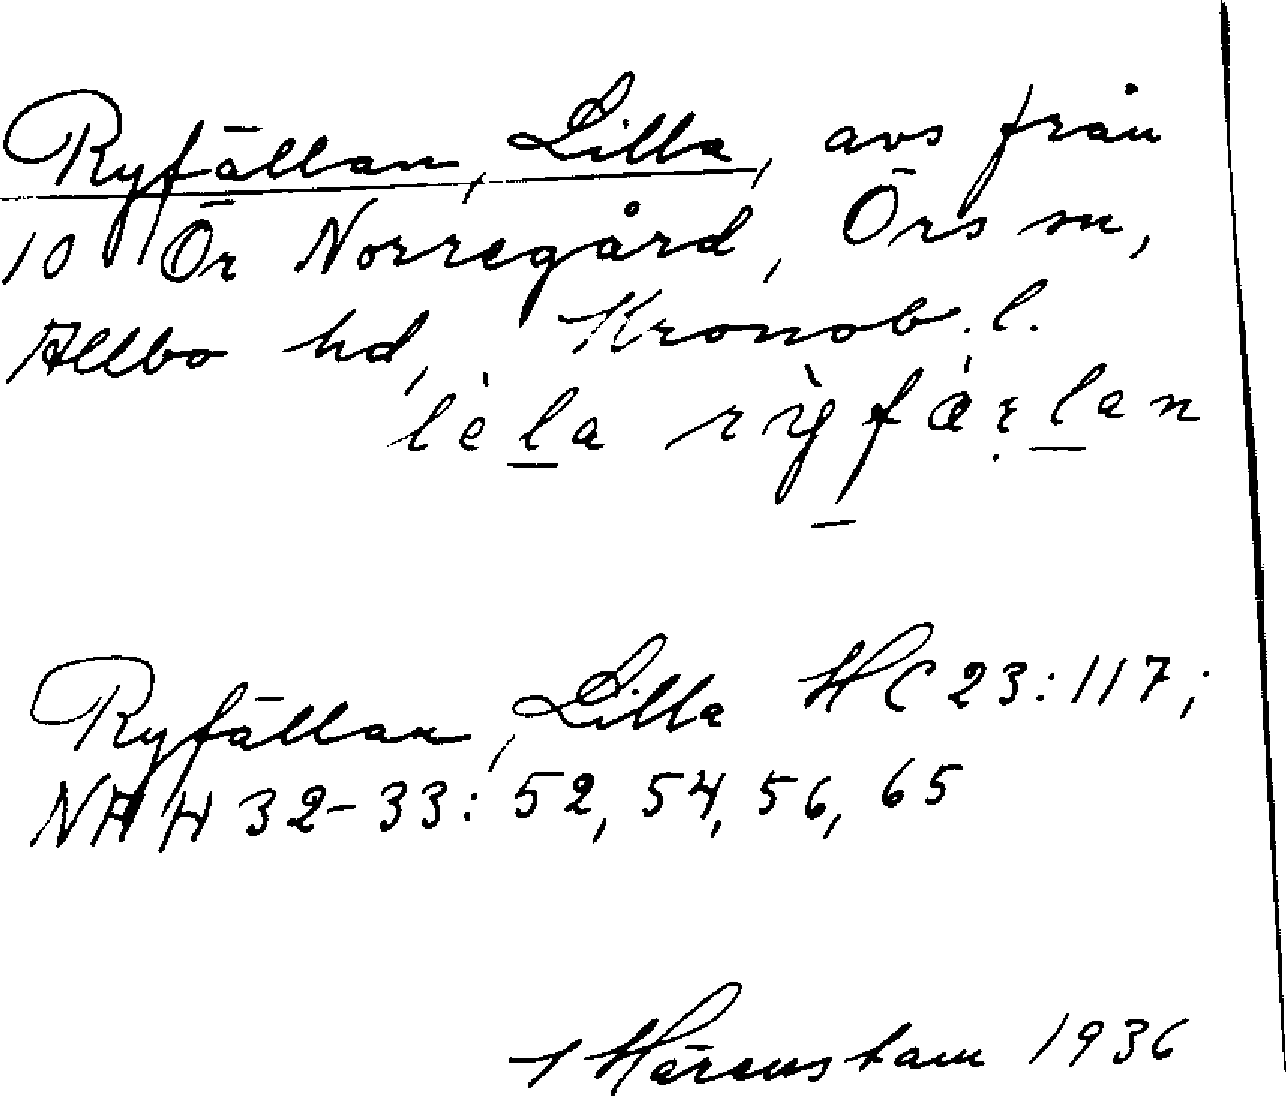 Ryfällan, Lilla, avs från
10 Ör Norregård, Örs sn,
Allbo hd, Kronob. l.
lèla rỳfæɽlan
Ryfällan, Lilla HC 23:117;
NHH 32-33: 52, 54, 56, 65
Härenstam 1936